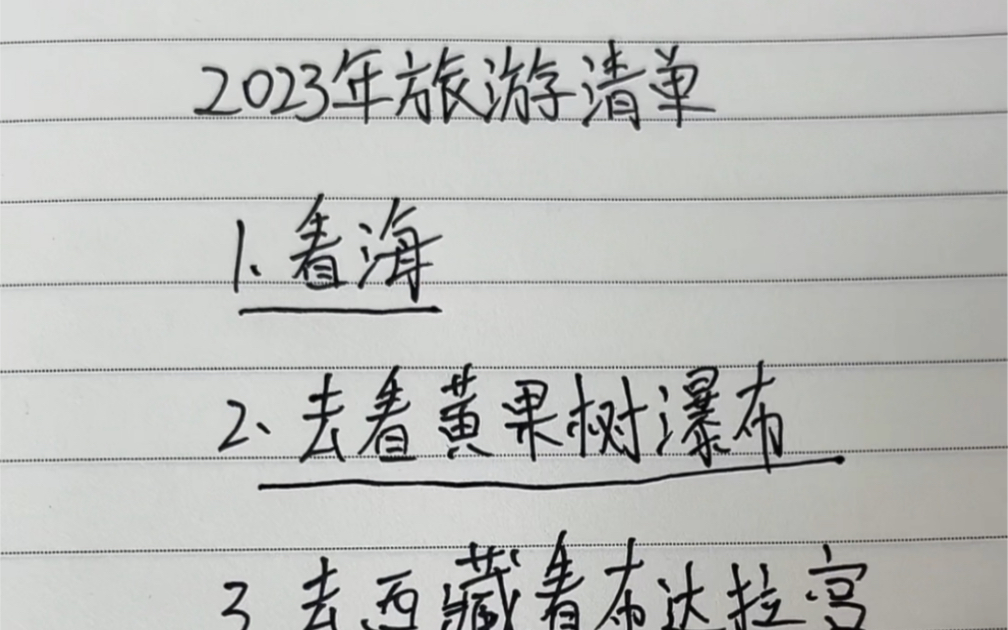 2023年旅游清单
1、看海
2、去看黄果树瀑布
3、去西藏看布达拉宫